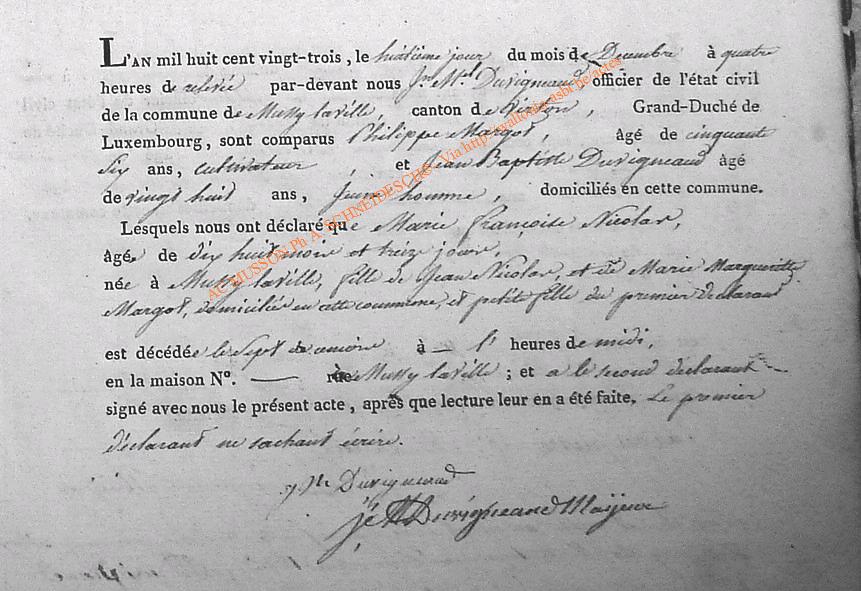 L'AN mil huit cent vingt-trois, le huitième jour du mois de Decembre à quatre
heures de relevée par-devant nous Duvigneaud officier de l'état civil
de la commune de Mussy laville, canton de Virton, Grand-Duché de
Luxembourg, sont comparus Philippe Margot, âgé de cinquante
Six ans, cultivateur, et Jean Baptiste Duvigneaud âgé
de vingt huit ans, Jeune homme, domiciliés en cette commune.
Lesquels nous ont déclaré que Marie françoise Nicolas,
âgée de dix huit mois et treize jours,
née à Mussy laville, fille de Jean Nicolas, et de Marie Margueritte
Margot, domiciliés en cette commune, et petite fille du premier declarant
est décédée le Sept à heures de midi,
en la maison N°. — Mussy laville; et a le second declarant
signé avec nous le présent acte, après que lecture leur en a été faite, Le premier
déclarant ne sachant écrire.
Duvigneaud
Duvigneaud Mayeur
AGMUSSON Ph A. SCHNEIDESCH